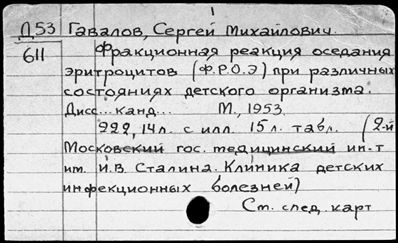 1
Д53 Гавалов, Сергей Михайлович.
611 Фракционная реакция оседания
эритроцитов (Ф.Р.О.Э) при различных
состояниях детского организма.
Дисс... канд... М., 1953.
222, 14 л. с илл. 15 л. табл. (2-й
Московский гос. медицинский ин-т
им. И.В. Сталина. Клиника детских
инфекционных болезней)
См. след. карт